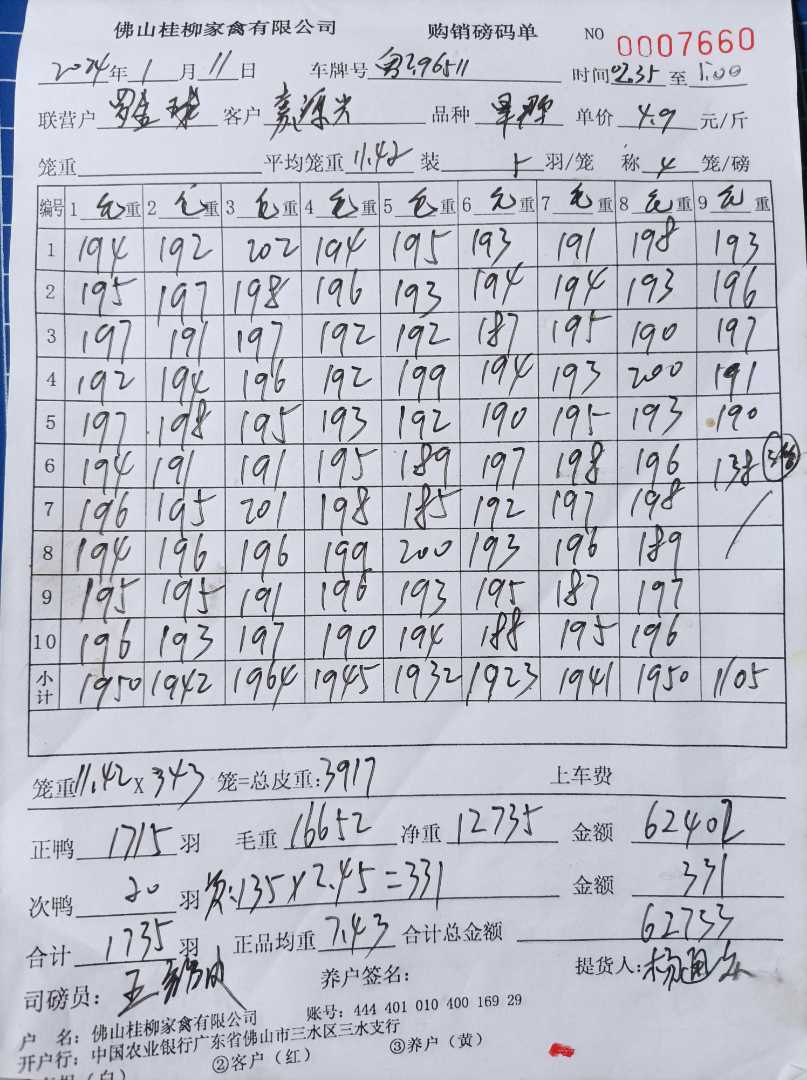 佛山桂柳家禽有限公司 购销磅码单 NO 0007660
2024年1月11日 车牌号 粤Z96511 时间02.35至5.00
联营户 客户 品种 单价 4.9 元/斤
笼重 平均笼重 11.42 装 5 羽/笼 称 4 笼/磅
编号 1 毛重 2 毛重 3 毛重 4 毛重 5 毛重 6 毛重 7 毛重 8 毛重 9 毛重
1 194 192 202 194 195 193 191 198 193
2 195 197 198 196 193 194 194 193 196
3 197 191 197 192 192 187 195 190 197
4 192 194 196 192 199 194 193 200 191
5 197 198 195 193 192 190 195 193 190
6 194 191 191 195 189 197 198 196 138 3笼
7 196 195 201 198 185 192 197 198
8 194 196 196 199 200 193 196 189
9 195 195 191 196 193 195 187 197
10 196 193 197 190 194 188 195 196
小计 1950 1942 1964 1945 1932 1923 1941 1950 1105
笼重11.42×343笼=总皮重:3917 上车费
正鸭 1715 羽 毛重 16652 净重 12735 金额 62402
次鸭 20 羽 :135×2.45=331 金额 331
合计 1735 羽 正品均重 7.43 合计总金额 62733
司磅员: 养户签名: 提货人:
户 名: 佛山桂柳家禽有限公司 账号: 444 401 010 400 169 29
开户行: 中国农业银行广东省佛山市三水区三水支行
(白) ②客户(红) ③养户(黄)